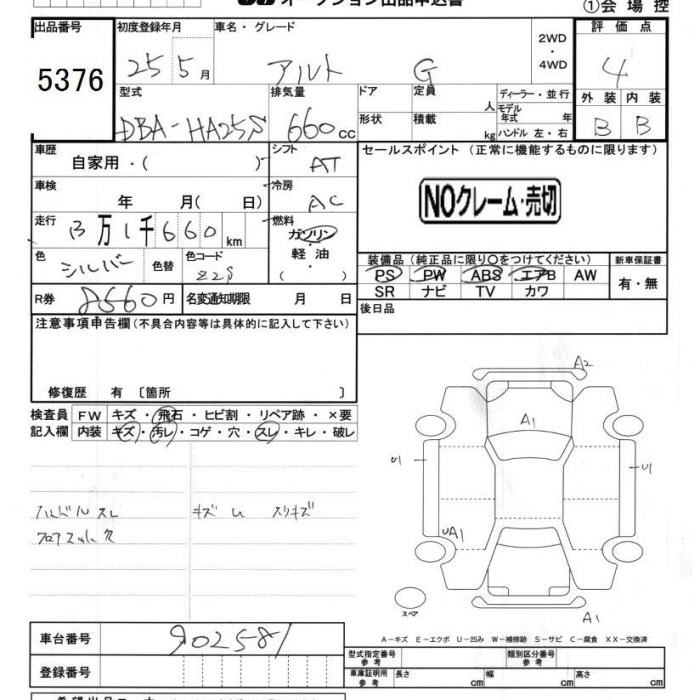 オークション出品申込書
①会場控
出品番号 初度登録年月 車名・グレード 2WD ・ 4WD 評価点
5376 25 5月 アルト G 4
型式 排気量 ドア 定員 人 ディーラー・並行 外装 内装
DBA-HA25S 660cc 形状 積載 kg モデル年式 年 ハンドル 左・右 B B
車歴 自家用・( ) シフト AT セールスポイント (正常に機能するものに限ります)
車検 年 月( 日) 冷房 AC NOクレーム・売切
走行 3万1千660km 燃料 ガソリン・軽油・( )
色 シルバー 色替 色コード Z2S 装備品(純正品に限り〇をつけてください) 新車保証書
PS PW ABS エアB AW 有・無
SR ナビ TV カワ
R券 8560円 名変通知期限 月 日 後日品
注意事項申告欄(不具合内容等は具体的に記入して下さい)
修復歴 有 〔箇所 〕
検査員記入欄 FW キズ・飛石・ヒビ割・リペア跡・×要
内装 キズ・汚レ・コゲ・穴・スレ・キレ・破レ
A2
A1
U1
U1
UA1
A1
スペア
ハンドルスレ キズ U スリキズ
A-キズ E-エクボ U-凹み W-補修跡 S-サビ C-腐食 XX-交換済
車台番号 902581
型式指定番号 参考 類別区分番号 参考
登録番号 車庫証明用 参考 長さ cm 幅 cm 高さ cm